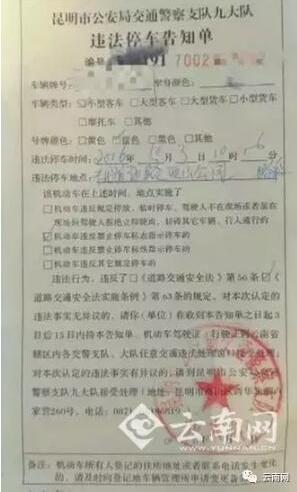 昆明市公安局交通警察支队九大队
违法停车告知单
编号 7002
车辆牌号: 车身颜色:
车辆类型: 小型客车 □大型客车 □大型货车 □小型货车
□摩托车 □其他
号牌颜色: □黄色 蓝色 □黑色 □其他
违法停车时间: 2016 年 月 3 日 10 时 6 分
违法停车地点:
该机动车在上述时间、地点实施了
□机动车违反规定停放、临时停车,驾驶人不在现场或者虽在
现场但驾驶人拒绝立即驶离,妨碍其它车辆、行人通行的
☑机动车违反禁止停车标志指示停车的
□机动车违反禁止停车标线指示停车的
违法行为,违反了□《道路交通安全法》第56条☑《
道路交通安全法实施条例》第63条的规定。对本次认定的
违法事实无异议的,请你(单位)在收到本告知单之日起3
日后15日内持本告知单、机动车驾驶证、行驶证到云南省
辖区内各交警支队、大队任意交通违法处理窗口接受处理;
对本次认定的违法事实有异议的,请到昆明市公安局交通
警察支队九大队接受处理(地址:昆明市
家营260号,电话:0871
云南网
WWW.YUNNAN.CN
备注:机动车所有人登记的住所地址或者联系电话发生变化
的,请及时向登记地车辆管理所申请变更备
云南网